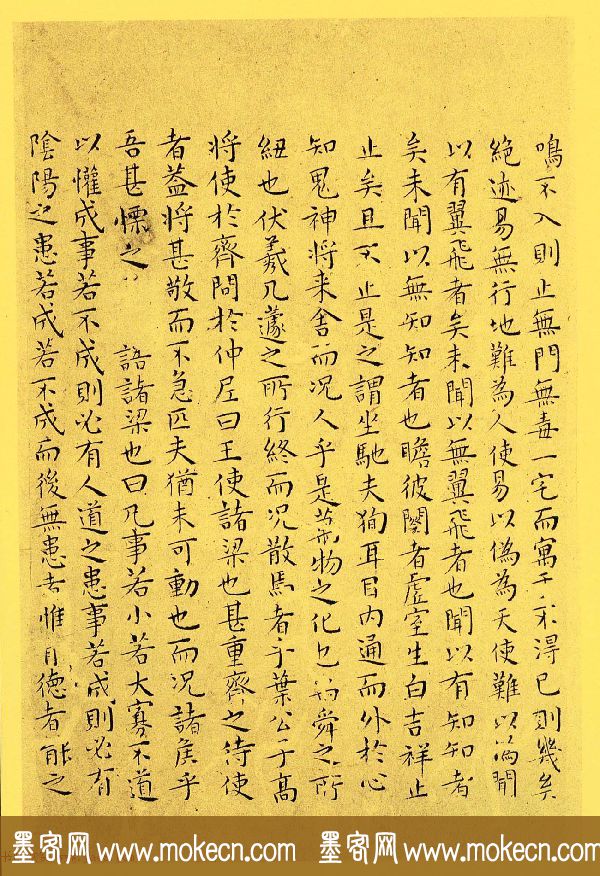 鳴不入則止無門無毒一宅而寓于不得已則幾矣
絕迹易無行地難為人使易以偽為天使難以偽聞
以有翼飛者矣未聞以無翼飛者也聞以有知知者
矣未聞以無知知者也瞻彼闋者虛室生白吉祥止
止矣且不止是之謂坐馳夫徇耳目內通而外於心
知鬼神将来舍而况人乎是萬物之化也禹舜之所
紐也伏羲几蘧之所行終而况散焉者乎葉公子高
将使於齊問於仲尼曰王使諸梁也甚重齊之待使
者蓋将甚敬而不急匹夫猶未可動也而况諸侯乎
吾甚慄之 語諸梁也曰凡事若小若大寡不道
以懽成事若不成則必有人道之患事若成則必有
陰陽之患若成若不成而後無患者惟有德者能之
墨客网 www.mokecn.com 墨客网 www.mokecn.com